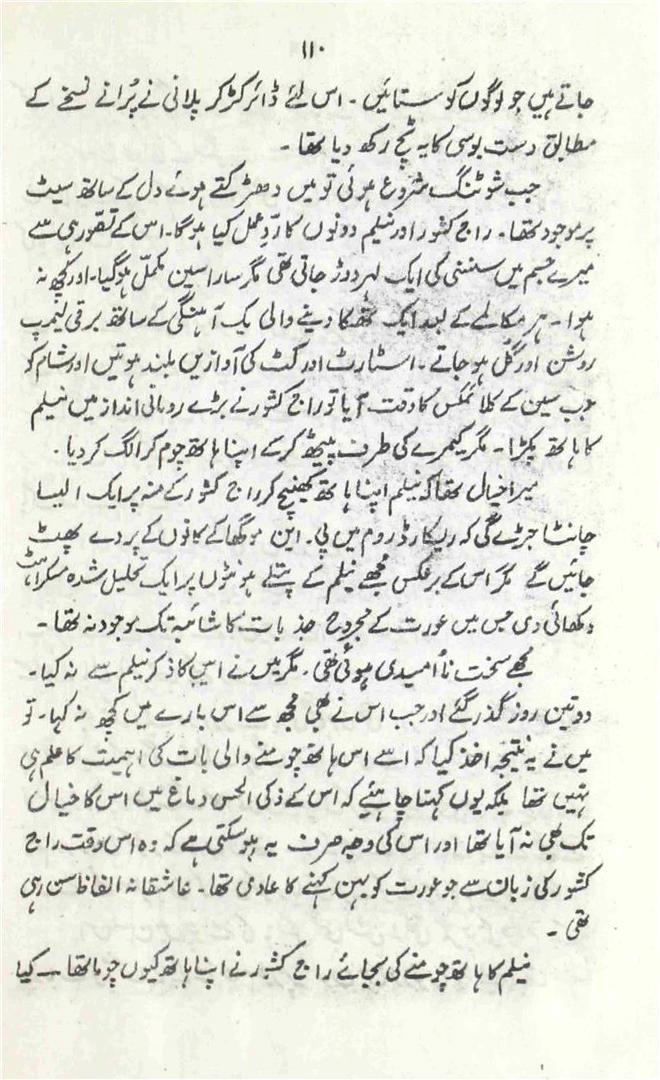 ۱۱۰
جاتے ہیں جو لوگوں کو ستائیں ۔ اس لئے ڈائرکٹر کرپلانی نے پُرانے نسخے کے
مطابق دست بوسی کا یہ ٹچ رکھ دیا تھا ۔
جب شوٹنگ شروع ہوئی تو میں دھڑکتے ہوئے دل کے ساتھ سیٹ
پر موجود تھا ۔ راج کشور اور نیلم دونوں کا ردِّ عمل کیا ہوگا ۔ اس کے تصّور ہی سے
میرے جسم میں سنسنی کی ایک لہر دوڑ جاتی تھی مگر سارا سین مکمّل ہوگیا ۔ اور کچھ نہ
ہوا ۔ ہر مکالمے کے بعد ایک تھکا دینے والی یک آہنگی کے ساتھ برقی لیمپ
روشن اور گُل ہو جاتے ۔ اسٹارٹ اور کٹ کی آوازیں بلند ہوتیں اور شام کو
جب سین کے کلائمکس کا وقت آیا تو راج کشور نے بڑے رومانی انداز میں نیلم
کا ہاتھ پکڑا ۔ مگر کیمرے کی طرف پیٹھ کر کے اپنا ہاتھ چوم کر الگ کر دیا ۔
میرا خیال تھا کہ نیلم اپنا ہاتھ کھینچ کر راج کشور کے منہ پر ایک ایسا
چانٹا جڑے گی کہ ریکارڈ روم میں پی ۔ این موگھا کے کانوں کے پردے پھٹ
جائیں گے مگر اس کے برعکس مجھے نیلم کے پتلے ہونٹوں پر ایک تحلیل شدہ مسکراہٹ
دکھائی دی جس میں عورت کے مجروح جذبات کا شائبہ تک موجود نہ تھا ۔
مجھے سخت نااُمیدی ہوئی تھی ۔ مگر میں نے اس کا ذکر نیلم سے نہ کیا ۔
دو تین روز گذر گئے اور جب اس نے بھی مجھ سے اس بارے میں کچھ نہ کہا ۔ تو
میں نے یہ نتیجہ اخذ کیا کہ اسے اس ہاتھ چومنے والی بات کی اہمیت کا علم ہی
نہیں تھا بلکہ یوں کہنا چاہیئے کہ اس کے ذکی الحس دماغ میں اس کا خیال
تک بھی نہ آیا تھا اور اس کی وجہ صرف یہ ہو سکتی ہے کہ وہ اس وقت راج
کشور کی زبان سے جو عورت کو بہن کہنے کا عادی تھا ۔ عاشقانہ الفاظ سن رہی
تھی ۔
نیلم کا ہاتھ چومنے کی بجائے راج کشور نے اپنا ہاتھ کیوں چوما تھا ــ کیا